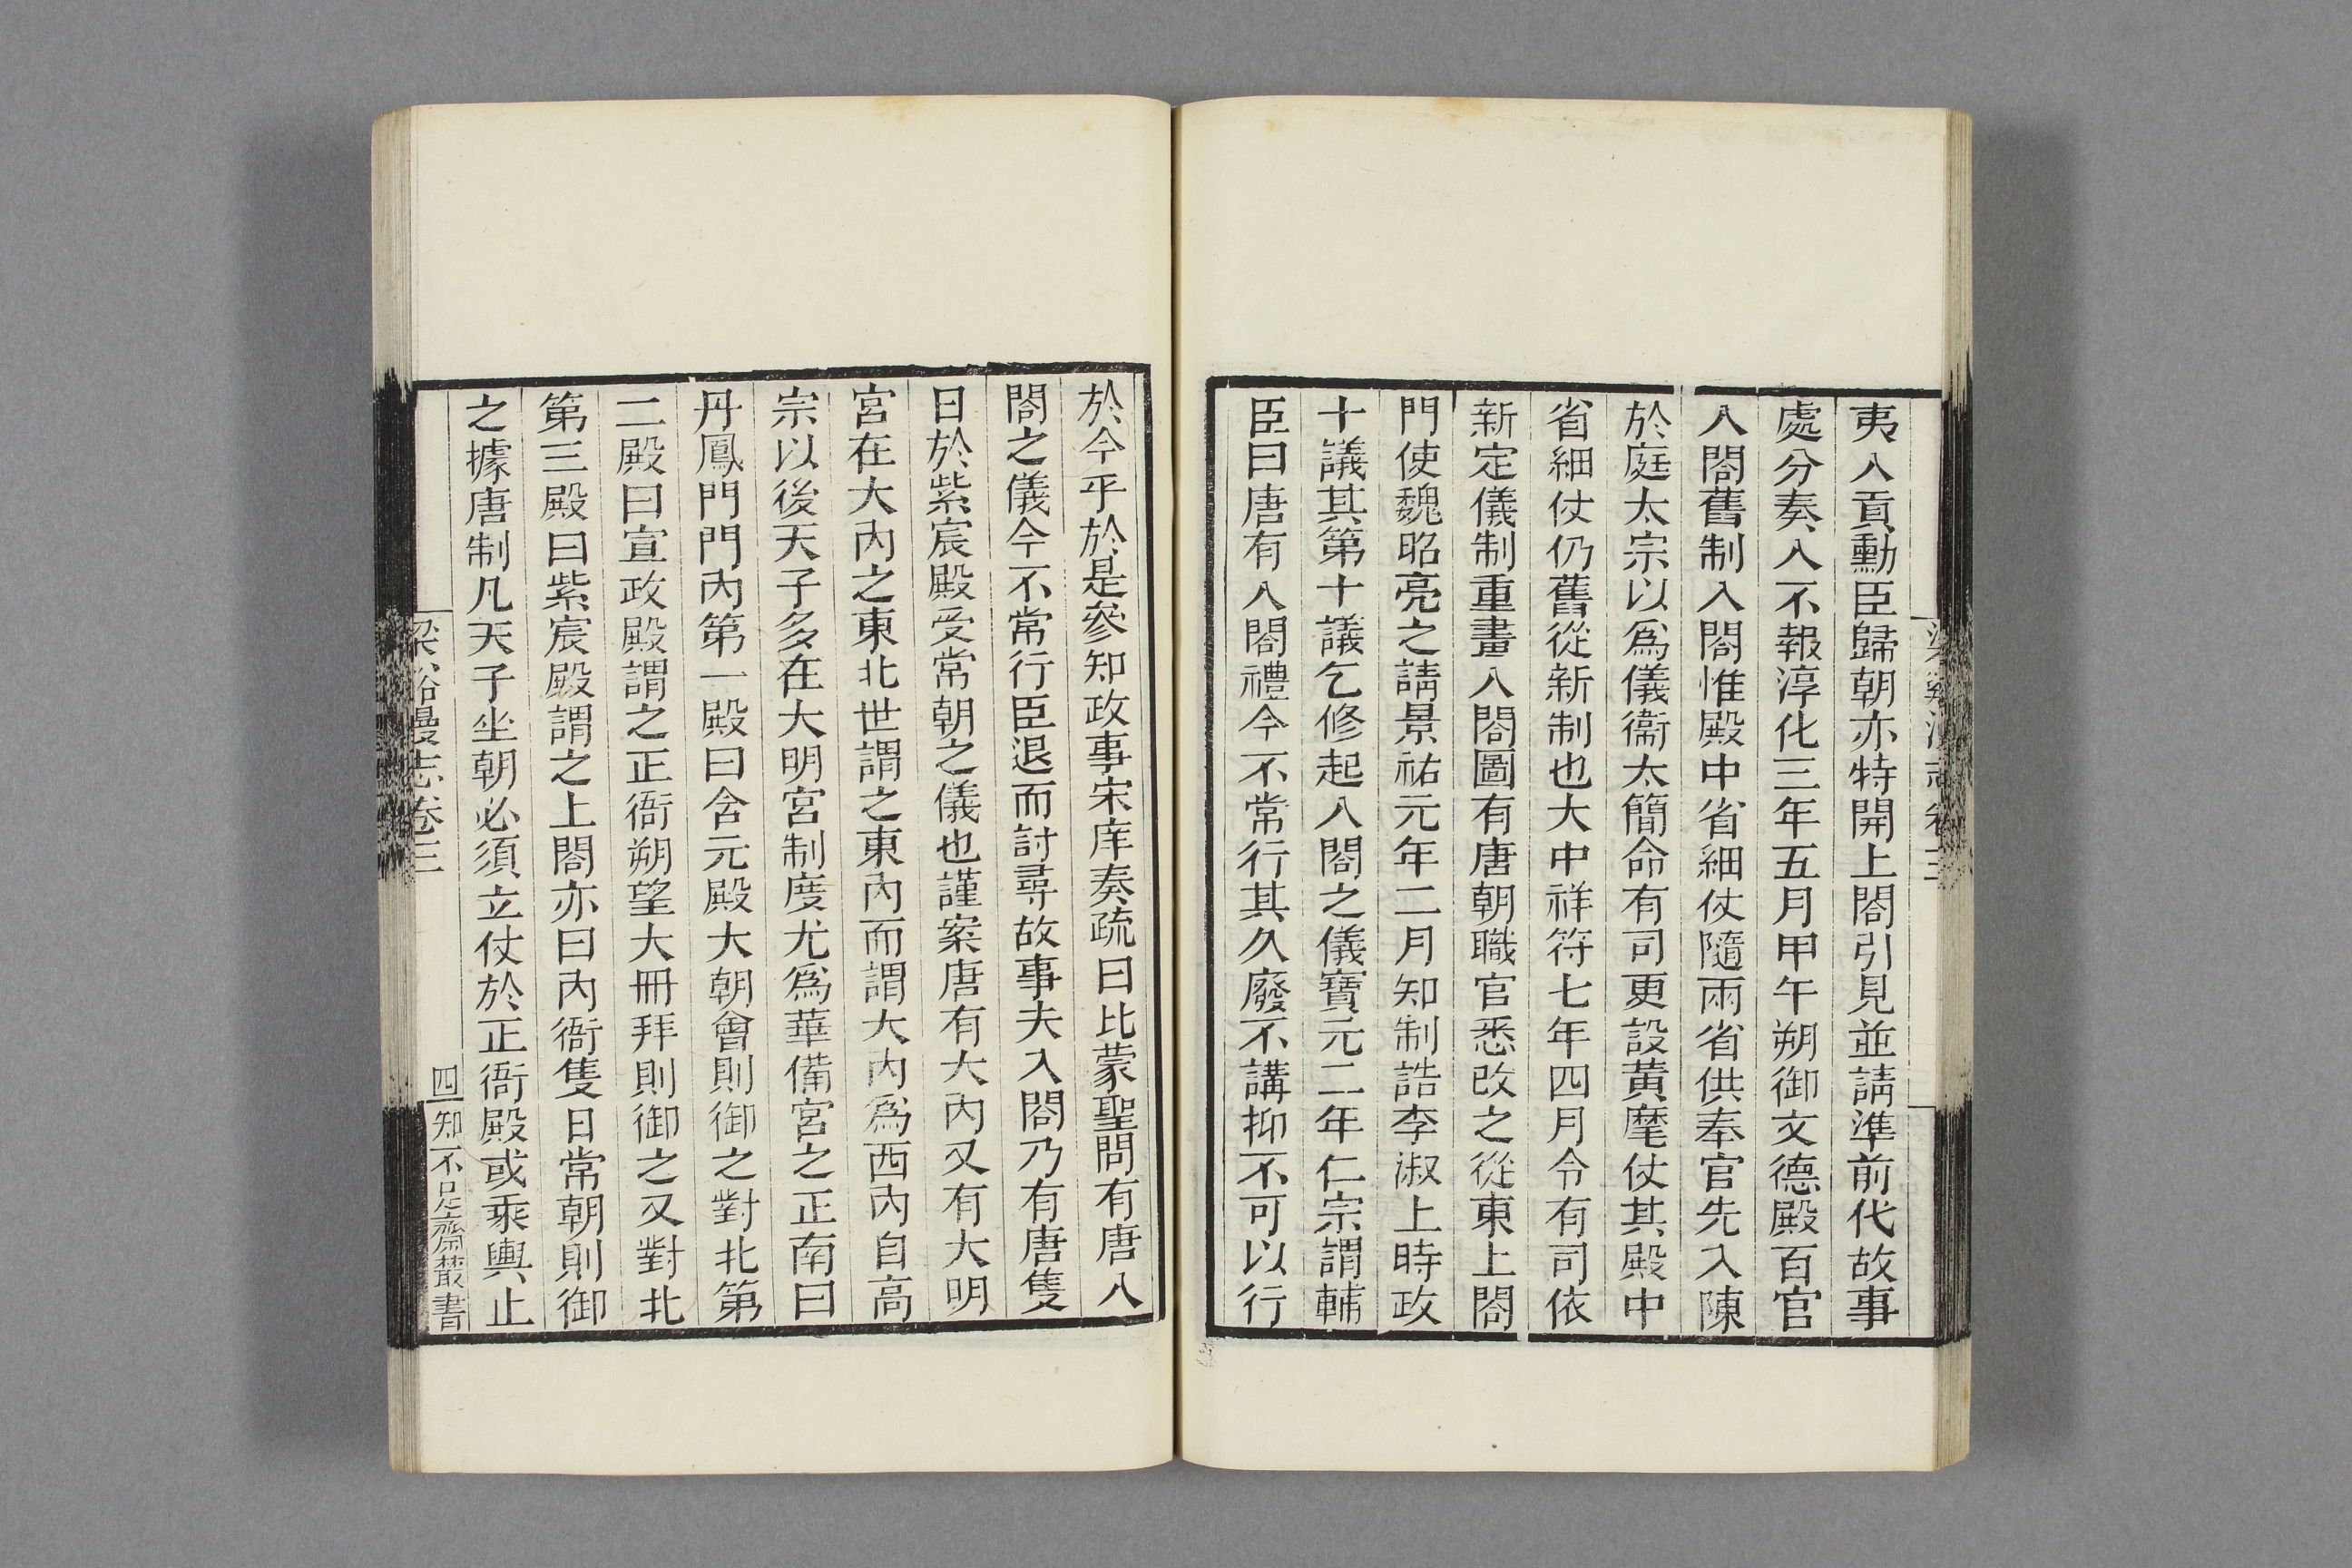 夷入貢勳臣歸朝亦特開上閤引見並請準前代故事
處分奏入不報淳化三年五月甲午朔御文德殿百官
入閤舊制入閤惟殿中省細仗隨兩省供奉官先入陳
於庭太宗以爲儀衞太簡命有司更設黃麾仗其殿中
省細仗仍舊從新制也大中祥符七年四月令有司依
新定儀制重畫入閤圖有唐朝職官悉改之從東上閤
門使魏昭亮之請景祐元年二月知制誥李淑上時政
十議其第十議乞修起入閤之儀寶元二年仁宗謂輔
臣曰唐有入閤禮今不常行其久廢不講抑不可以行
於今乎於是參知政事宋庠奏疏曰比蒙聖問有唐入
閤之儀今不常行臣退而討尋故事夫入閤乃有唐隻
日於紫宸殿受常朝之儀也謹案唐有大內又有大明
宮在大內之東北世謂之東內而謂大內爲西內自高
宗以後天子多在大明宮制度尤爲華備宮之正南曰
丹鳳門門內第一殿曰含元殿大朝會則御之對北第
二殿曰宣政殿謂之正衙朔望大冊拜則御之又對北
第三殿曰紫宸殿謂之上閤亦曰內衙隻日常朝則御
之據唐制凡天子坐朝必須立仗於正衙殿或乘輿止
梁谿漫志卷三
四
知不足齋叢書